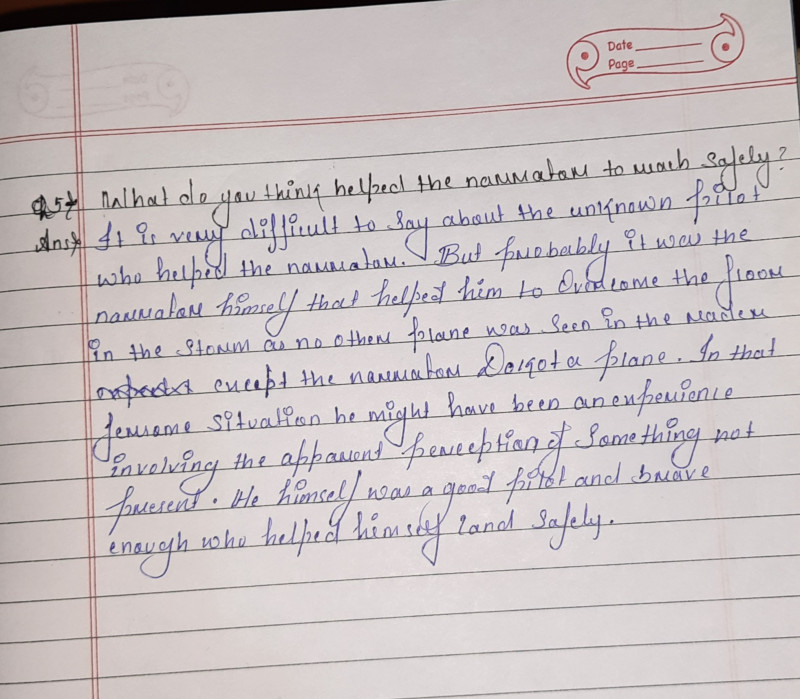 Date
Page
Q5⟩ What do you think helped the narrator to reach safely?
Ans⟩ It is very difficult to say about the unknown pilot
who helped the narrator. But probably it was the
narrator himself that helped him to Overcome the floor
in the storm as no other plane was seen in the rader
except the narrator Dakota plane. In that
fearsome situation he might have been an experience
involving the apparent perception of Something not
present. He himself was a good pilot and brave
enough who helped himself land safely.